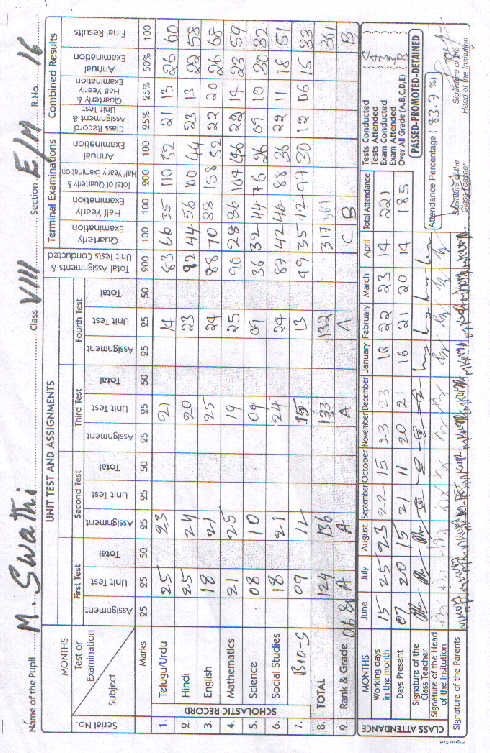 Name of the Pupil M. Swathi Class VIII Section E/M R.No. 16
SCHOLASTIC RECORD
Serial No.
MONTHS
Test or Examination
Subject
UNIT TEST AND ASSIGNMENTS
Terminal Examinations
Combined Results
First Test
Second Test
Third Test
Fourth Test
Assignment Unit Test Total
Assignment Unit Test Total
Assignment Unit Test Total
Assignment Unit Test Total
Total Assignments & Unit Tests Conducted
Quarterly Examination
Half Yearly Examination
Total of Quarterly & Half Yearly Examination
Annual Examination
Class Record Assignment & Unit Test
Quarterly & Half Yearly Examination
Annual Examination
Final Results
Marks 25 25 50 25 25 50 25 25 50 25 25 50 200 100 100 200 100 25% 25% 50% 100
1. Telugu/Urdu 25 23 21 14 83 66 35 52 21 13 26 60
2. Hindi 25 24 20 23 92 44 56 100 44 23 13 22 58
3. English 18 21 25 24 88 70 88 158 52 22 20 26 68
4. Mathematics 21 25 19 25 90 28 86 22 14 23 59
5. Science 08 10 09 09 36 32 44 76 09 10
6. Social Studies 18 21 24 24 87 42 46 88 36 22 11 18 51
7. Bio-S 09 12 15 13 49 35 12 30 12 06 15 33
8. TOTAL 124 136 133 132 317
9. Rank & Grade A A A A C B B
CLASS ATTENDANCE
MONTHS June July August September October November December January February March April Total Attendance
Working days in the month 15 25 23 22 15 23 23 18 22 23 14 221
Days Present 07 20 15 21 11 20 2 16 21 20 14 185
Signature of the Class Teacher
Signature of the Head of the Institution
Signature of the Parents
Tests Conducted
Tests Attended
Exam Conducted
Exam Attended
Over All Grade (A,B,C,D,E)
PASSED-PROMOTED-DETAINED
Attendance Percentage (83.7%)
Signature of the Class Teacher
Signature of the Head of the Institution